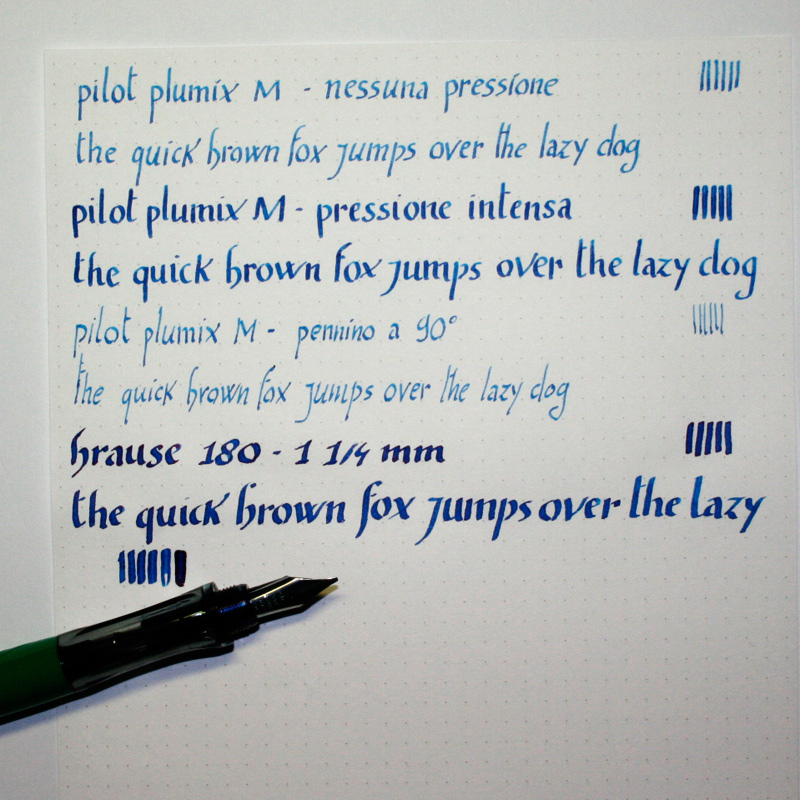 pilot plumix M - nessuna pressione
the quick brown fox jumps over the lazy dog
pilot plumix M - pressione intensa
the quick brown fox jumps over the lazy dog
pilot plumix M - pennino a 90°
the quick brown fox jumps over the lazy dog
brause 180 - 1 1/4 mm
the quick brown fox jumps over the lazy